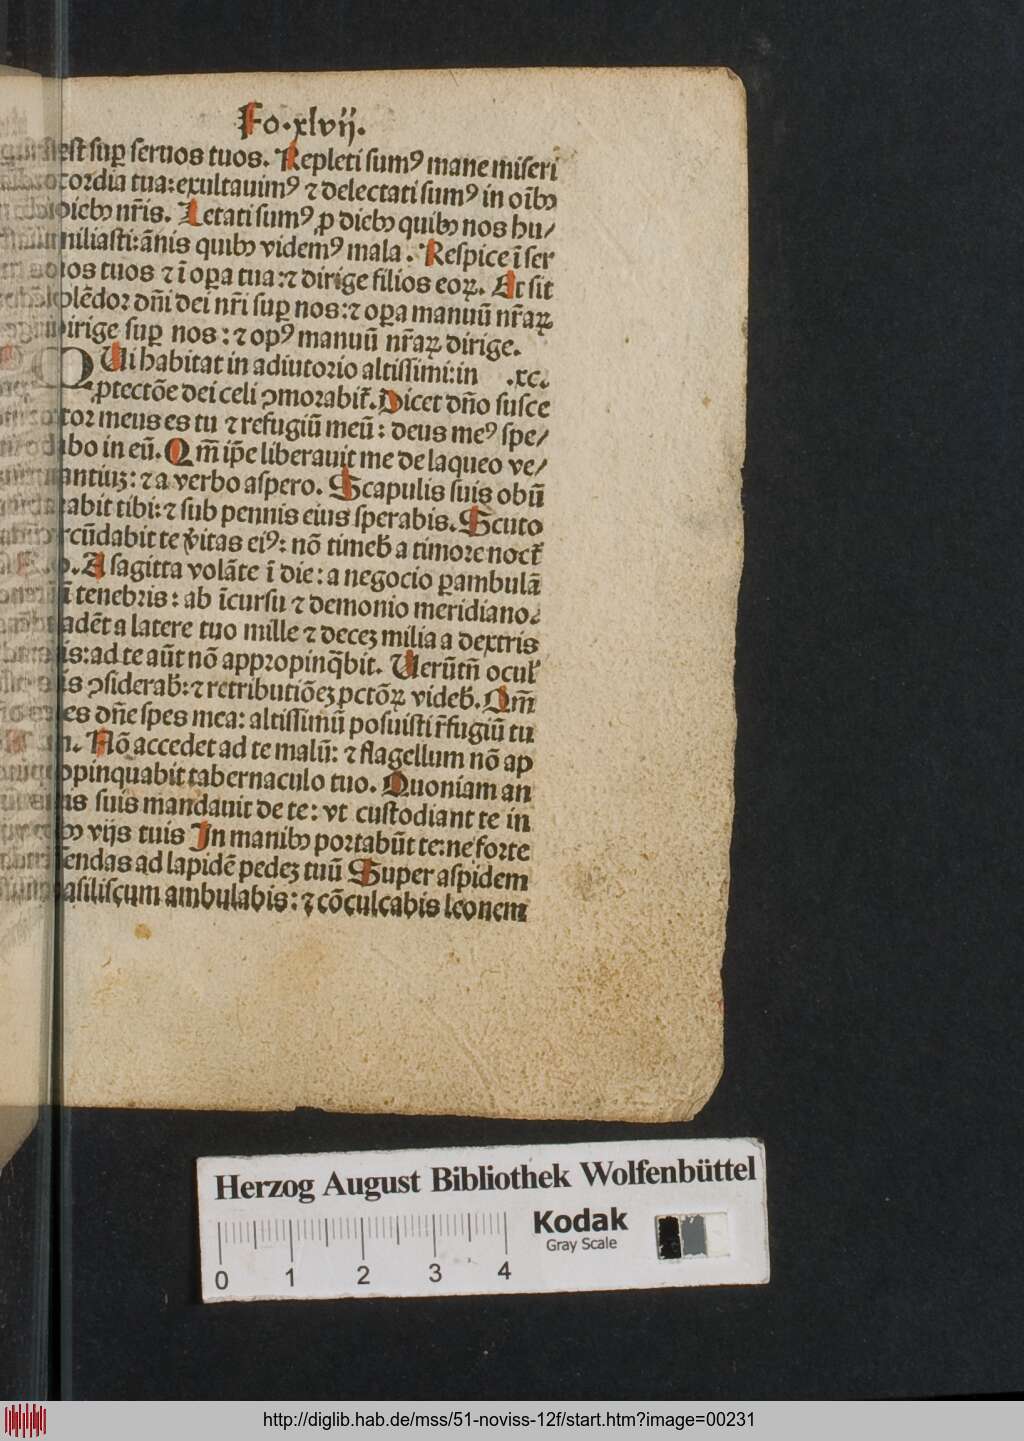 Fo.xlvij.
est sup̱ seruos tuos. Repleti sumꝰ mane miseri
cordia tua: exultauimꝰ ⁊ delectati sumꝰ in oīb
diebꝫ nr̄is. Letati sumꝰ ꝓ diebꝫ quibꝫ nos hu/
miliasti: ānis quibꝫ videmꝰ mala. Respice ī ser
uos tuos ⁊ ī oꝑa tua: ⁊ dirige filios eoꝝ. Et sit
splēdor dn̄i dei nr̄i suꝑ nos: ⁊ oꝑa manuū nr̄aꝝ
dirige suꝑ nos: ⁊ opꝰ manuū nr̄aꝝ dirige.
QUi habitat in adiutorio altissimi: in .xc.
ꝓtectōe dei celi ꝯmorabit̄. Dicet dn̄o susce
tor meus es tu ⁊ refugiū meū: deus meꝰ spe/
abo in eū. Qm̄ ip̄e liberauit me de laqueo ve/
antiuꝫ: ⁊ a verbo aspero. Scapulis suis obū
abit tibi: ⁊ sub pennis eius sperabis. Scuto
rcūdabit te v̄itas eiꝰ: nō timeb̄ a timore noct̄
o. A sagitta volāte ī die: a negocio ꝑambulā
ī tenebris: ab īcursu ⁊ demonio meridiano.
adēt a latere tuo mille ⁊ deceꝫ milia a dextris
is: ad te aūt nō appropinq̄bit. Uerūtn̄ ocul̄
is ꝯsiderab̄: ⁊ retributiōeꝫ pctōꝝ videb̄. Qm̄
es dn̄e spes mea: altissimū posuisti r̄fugiū tu
m. Nō accedet ad te malū: ⁊ flagellum nō ap
opinquabit tabernaculo tuo. Quoniam an
is suis mandauit de te: vt custodiant te in
bꝫ vijs tuis In manibꝫ portabūt te: ne forte
fendas ad lapidē pedeꝫ tuū Super aspidem
asiliscum ambulabis: ⁊ cōculcabis leonem
Herzog August Bibliothek Wolfenbüttel
Kodak
Gray Scale
0 1 2 3 4
http://diglib.hab.de/mss/51-noviss-12f/start.htm?image=00231